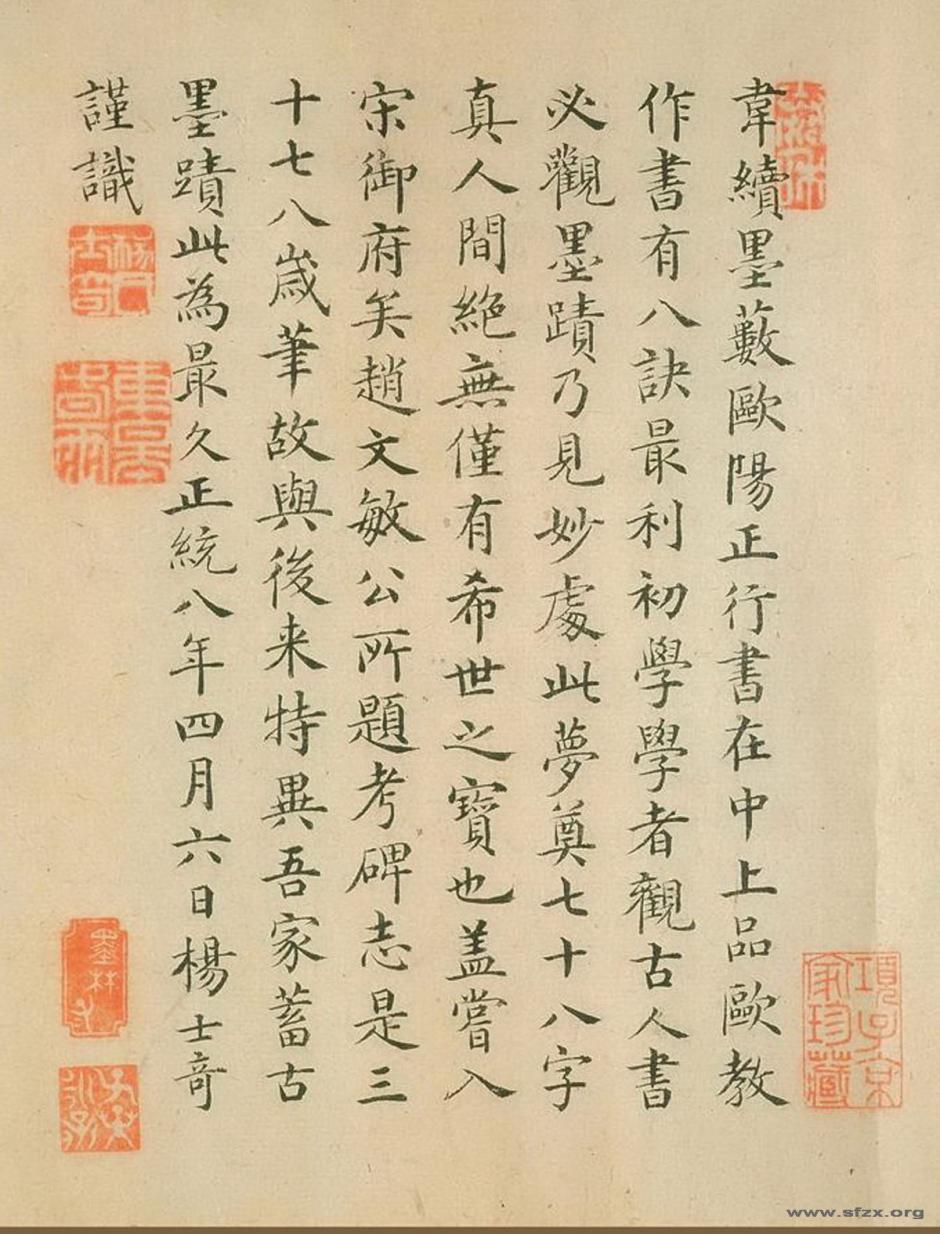 韋續墨藪歐陽正行書在中上品歐教
作書有八訣最利初學學者觀古人書
必觀墨蹟乃見妙處此夢奠七十八字
真人間絕無僅有希世之寶也盖嘗入
宋御府矣趙文敏公所題考碑志是三
十七八歲筆故與後来特異吾家蓄古
墨蹟此為最久正統八年四月六日楊士奇
謹識
項子京家珍藏
墨林
www.sfzx.org